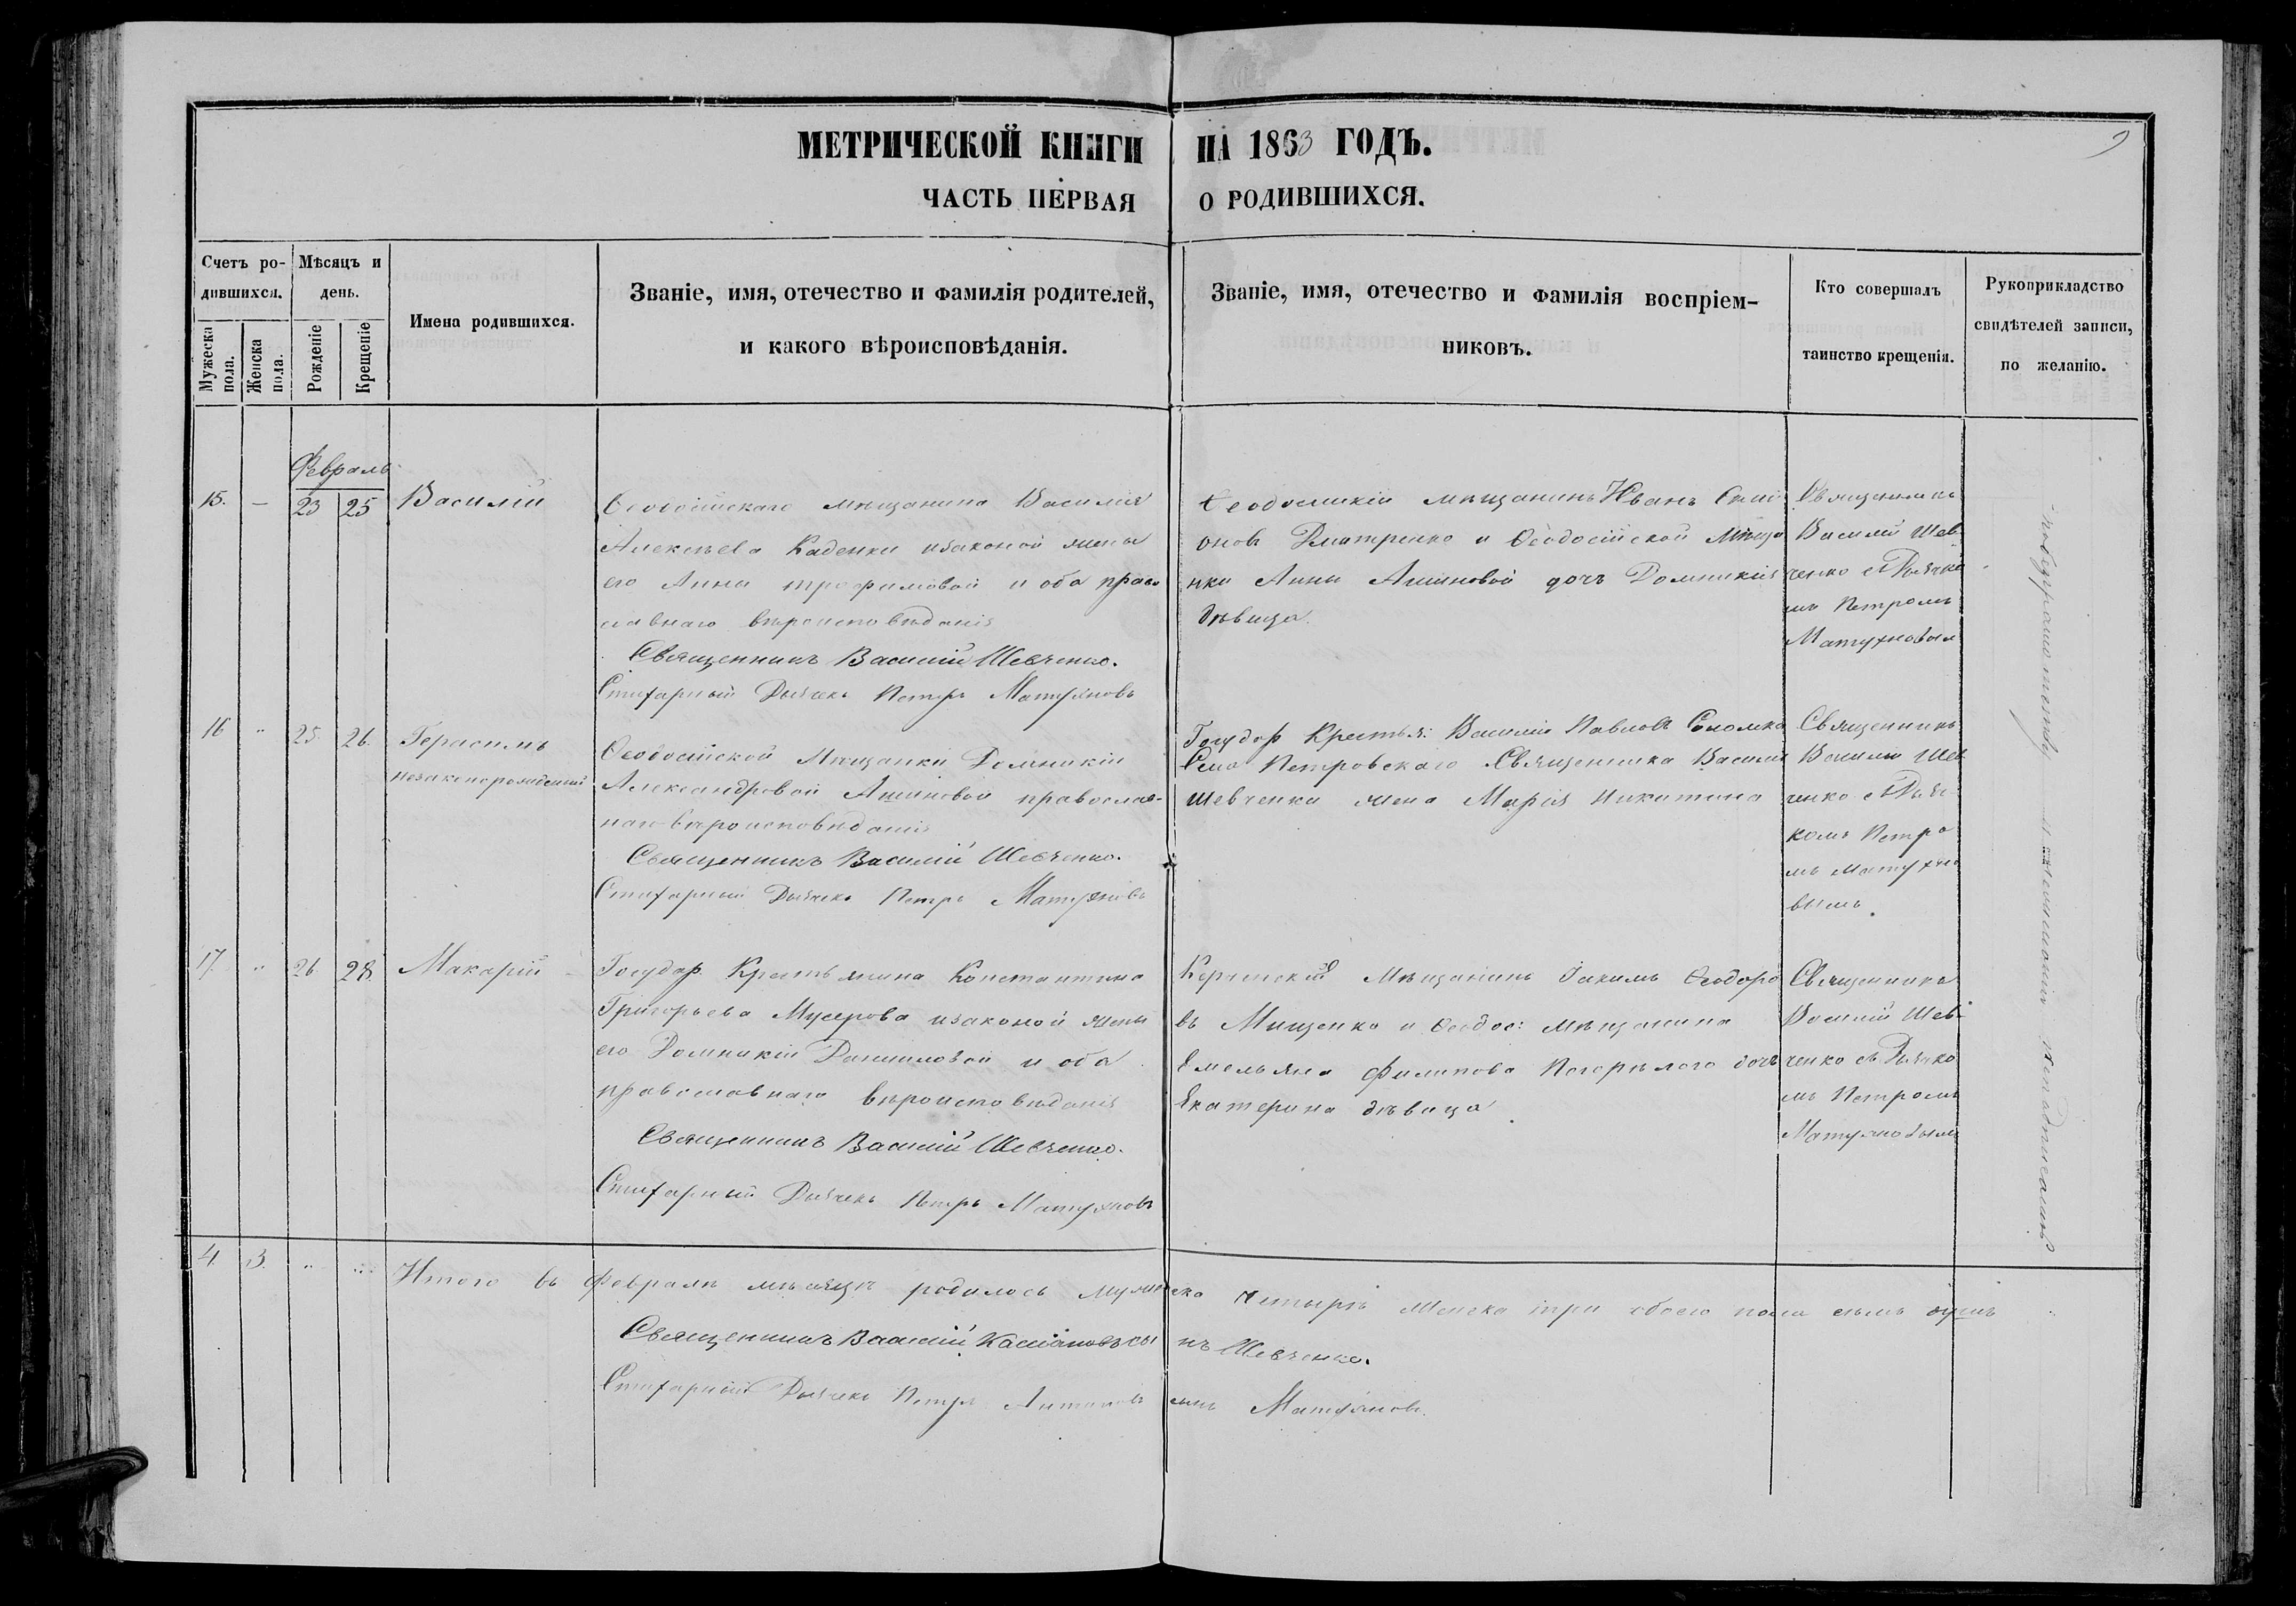 МЕТРИЧЕСКОЙ КНИГИ НА 1863 ГОДЪ.
ЧАСТЬ ПЕРВАЯ О РОДИВШИХСЯ.
Счетъ ро-
дившихся.
Мужеска пола.
Женска пола.
Мѣсяцъ и
день.
Рожденіе
Крещеніе
Имена родившихся.
Званіе, имя, отечество и фамилія родителей,
и какого вѣроисповѣданія.
Званіе, имя, отечество и фамилія воспріем-
никовъ.
Кто совершалъ
таинство крещенія.
Рукоприкладство
свидѣтелей записи,
по желанію.
Февраль
15. — 23 25 Василій
Ѳеодосійскаго мѣщанина Василія
Алексѣева Каденки изаконой жены
его Анны трофимовой и оба право
славнаго вѣроисповѣданія
Священникъ Василій Шевченко.
Стихарный Дьячекъ Петръ Матухновъ
Ѳеодосійскій мѣщанинъ Иванъ Сими
оновъ Дмитренко и Ѳеодосійской Мѣща
нки Анны Ашиновой дочь Домникія
дѣвица.
Священникъ
Василій Шев
ченко съ Дьячко
мъ Петромъ
Матухновым
16 " 25. 26. Герасимъ
незаконорожденный
Ѳеодосійской Мѣщанки Домникіи
Александровой Ашиновой православ-
наго вѣроисповѣданія
Священникъ Василій Шевченко.
Стихарный Дьячекъ Петръ Матухновъ
Государ Крестья: Василій Павловъ Соломка
Села Петровскаго Священника Василія
Шевченки жена Марія Никитина
Священникъ
Василій Шев
ченко съ Дьяч
комъ Петро
мъ Матухно
вымъ.
17. " 26. 28. Макарій
Государ. Крестьянина Константина
Григорьева Мусерова изаконой жены
его Домникіи Даниловой и оба
православнаго вѣроисповѣданія
Священникъ Василій Шевченко.
Стихарный Дьячекъ Петръ Матухновъ
Керченскій Мѣщанинъ Іакимъ Ѳеодоро
въ Мищенко и Ѳеодос: мѣщанина
Емельяна Филипова Погорѣлого дочь
Екатерина дѣвица.
Священникъ
Василій Шев-
ченко съ Дьячко
мъ Петромъ
Матухновым
4. 3. " " Итого въ Февралѣ мѣсяцѣ родилось мужеска четырѣ Женска три обоего пола семъ душъ
Священникъ Василій Кассіановъ сынъ Шевченко.
Стихарный Дьячекъ Петръ Антоновъ сынъ Матухновъ.